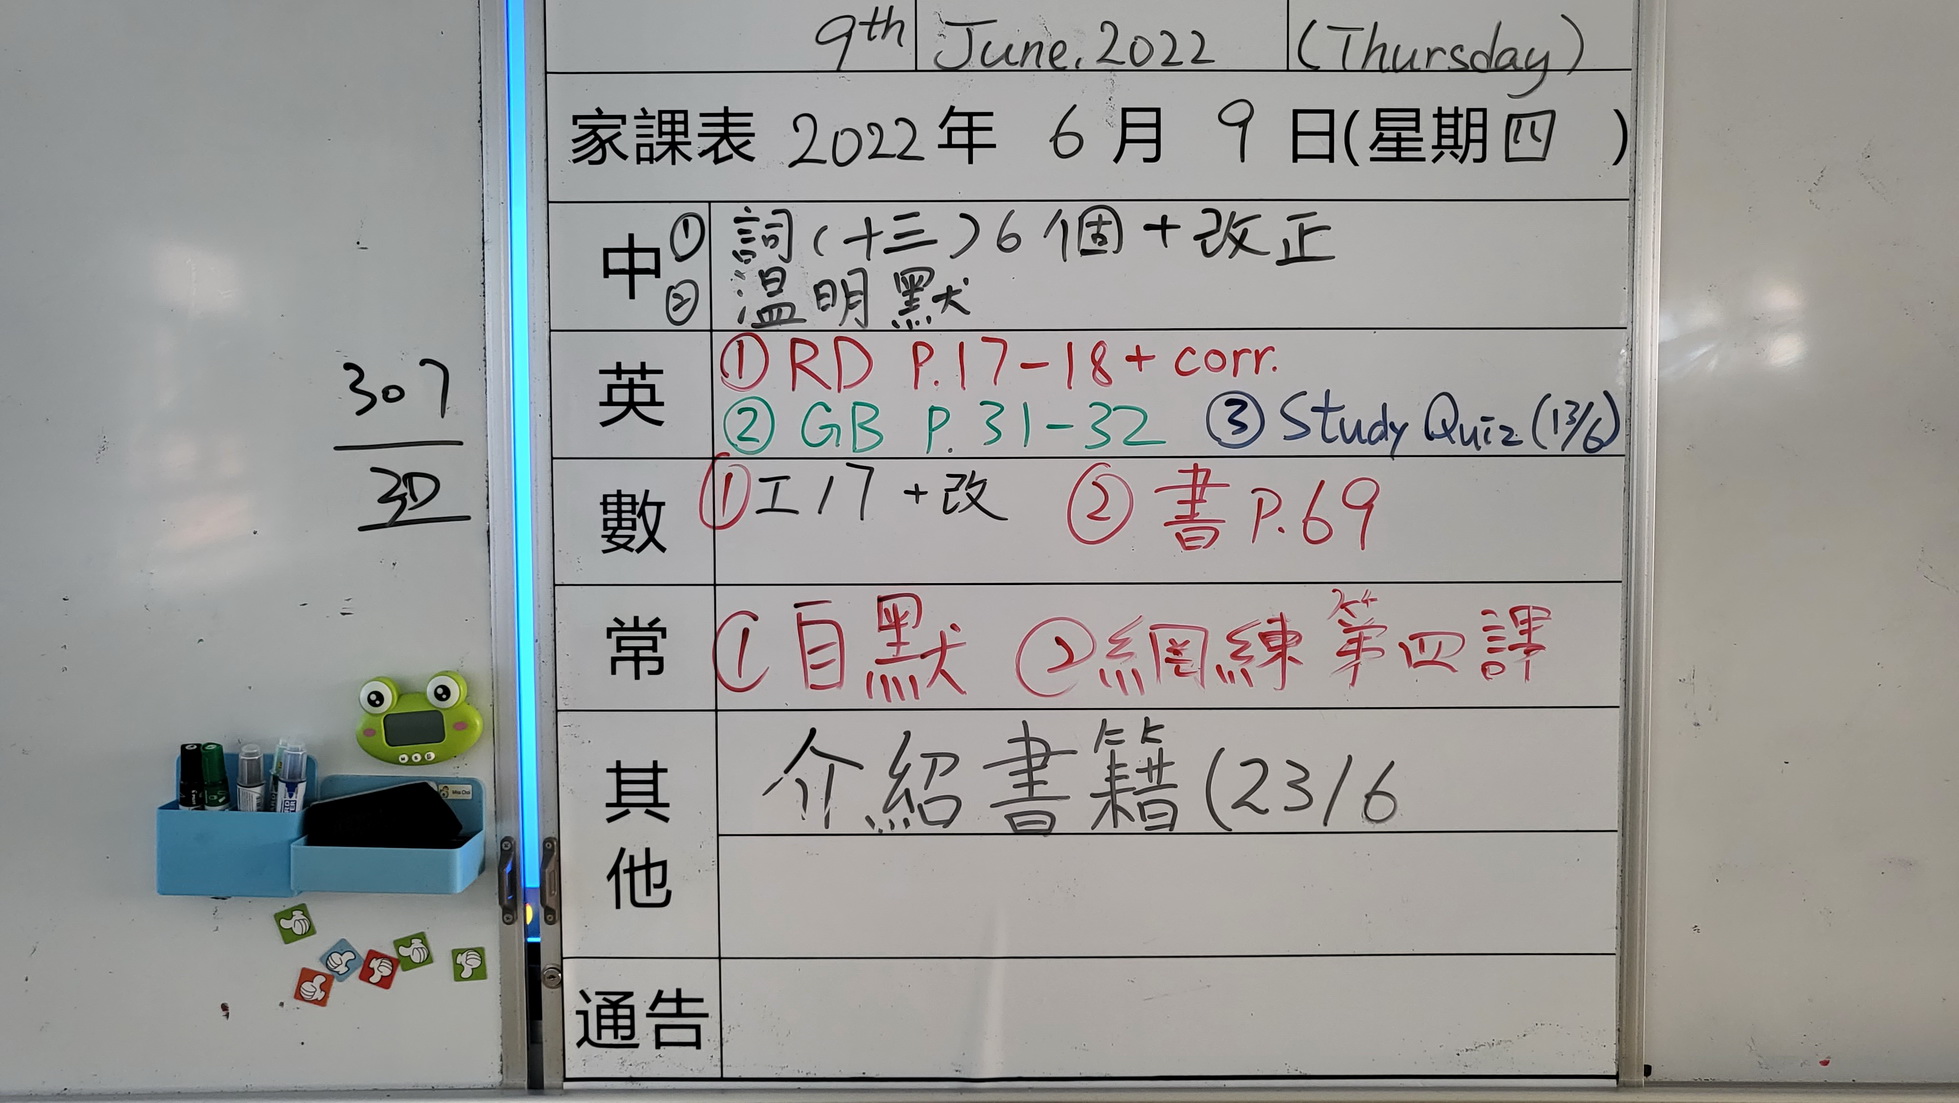 9th June. 2022 (Thursday)
家課表 2022年 6月 9日(星期四 )
中 ① 詞(十三)6個+改正
② 温明默
英 ① RD P.17-18+corr.
② GB P.31-32 ③ Study Quiz (13/6)
數 ① 工17+改 ② 書P.69
常 ① 自默 ② 網練第四課
其他 介紹書籍(23/6
通告
307
3D